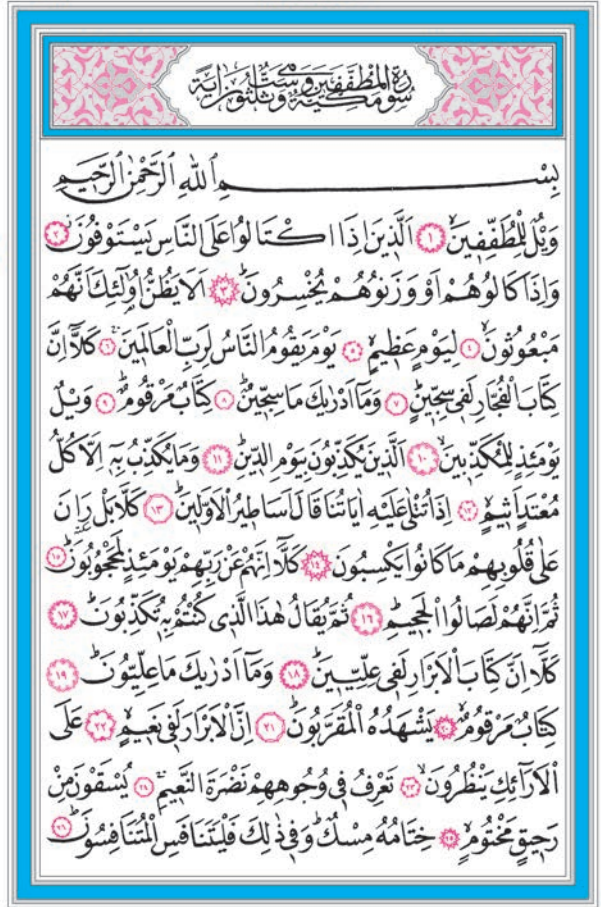 سُورَةُ الْمُطَفِّفِينَ مَكِّيَّةٌ وَهِيَ سِتٌّ وَثَلٰثُونَ اٰيَةً
بِسْمِ اللّٰهِ الرَّحْمٰنِ الرَّحِيمِ
وَيْلٌ لِلْمُطَفِّفِينَۙ ﴿١﴾ اَلَّذِينَ اِذَا اكْتَالُوا عَلَى النَّاسِ يَسْتَوْفُونَۘ ﴿٢﴾
وَاِذَا كَالُوهُمْ اَوْ وَزَنُوهُمْ يُخْسِرُونَۜ ﴿٣﴾ اَلَا يَظُنُّ اُو۬لٰٓئِكَ اَنَّهُمْ
مَبْعُوثُونَۙ ﴿٤﴾ لِيَوْمٍ عَظِيمٍۙ ﴿٥﴾ يَوْمَ يَقُومُ النَّاسُ لِرَبِّ الْعَالَمِينَۜ ﴿٦﴾ كَلَّٓا اِنَّ
كِتَابَ الْفُجَّارِ لَفِي سِجِّينٍۜ ﴿٧﴾ وَمَٓا اَدْرٰيكَ مَا سِجِّينٌۜ ﴿٨﴾ كِتَابٌ مَرْقُومٌۜ ﴿٩﴾ وَيْلٌ
يَوْمَئِذٍ لِلْمُكَذِّبِينَۙ ﴿١٠﴾ اَلَّذِينَ يُكَذِّبُونَ بِيَوْمِ الدِّينِۜ ﴿١١﴾ وَمَا يُكَذِّبُ بِهِٓ اِلَّا كُلُّ
مُعْتَدٍ اَثِيمٍۙ ﴿١٢﴾ اِذَا تُتْلٰى عَلَيْهِ اٰيَاتُنَا قَالَ اَسَاطِيرُ الْاَوَّلِينَۜ ﴿١٣﴾ كَلَّا بَلْ رَانَ
عَلٰى قُلُوبِهِمْ مَا كَانُوا يَكْسِبُونَ ﴿١٤﴾ كَلَّٓا اِنَّهُمْ عَنْ رَبِّهِمْ يَوْمَئِذٍ لَمَحْجُوبُونَۜ ﴿١٥﴾
ثُمَّ اِنَّهُمْ لَصَالُوا الْجَحِيمِۜ ﴿١٦﴾ ثُمَّ يُقَالُ هٰذَا الَّذِي كُنْتُمْ بِهِ تُكَذِّبُونَۜ ﴿١٧﴾
كَلَّٓا اِنَّ كِتَابَ الْاَبْرَارِ لَفِي عِلِّيِّينَۜ ﴿١٨﴾ وَمَٓا اَدْرٰيكَ مَا عِلِّيُّونَۜ ﴿١٩﴾
كِتَابٌ مَرْقُومٌۙ ﴿٢٠﴾ يَشْهَدُهُ الْمُقَرَّبُونَۜ ﴿٢١﴾ اِنَّ الْاَبْرَارَ لَفِي نَعِيمٍۙ ﴿٢٢﴾ عَلَى
الْاَرَٓائِكِ يَنْظُرُونَۙ ﴿٢٣﴾ تَعْرِفُ فِي وُجُوهِهِمْ نَضْرَةَ النَّعِيمِۚ ﴿٢٤﴾ يُسْقَوْنَ مِنْ
رَحِيقٍ مَخْتُومٍۙ ﴿٢٥﴾ خِتَامُهُ مِسْكٌۜ وَفِي ذٰلِكَ فَلْيَتَنَافَسِ الْمُتَنَافِسُونَۜ ﴿٢٦﴾